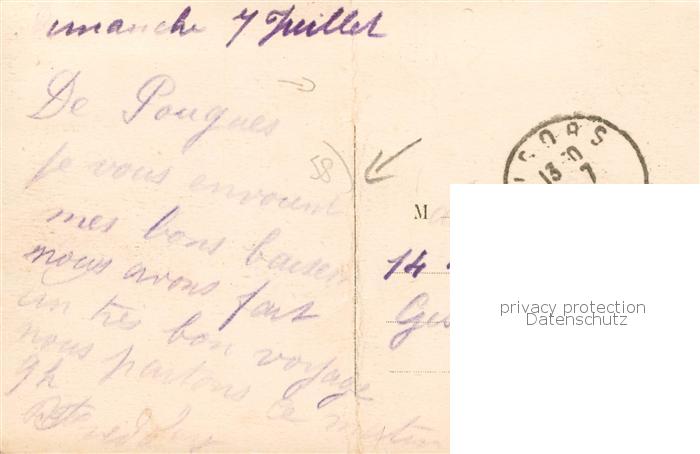 Dimanche 7 Juillet
De Pougues
je vous envoient
mes bons baisers
nous avons fait
un très bon voyage
nous partons ce matin
9h
58
ISORS
13 30
7
M
14
Gis
privacy protection
Datenschutz